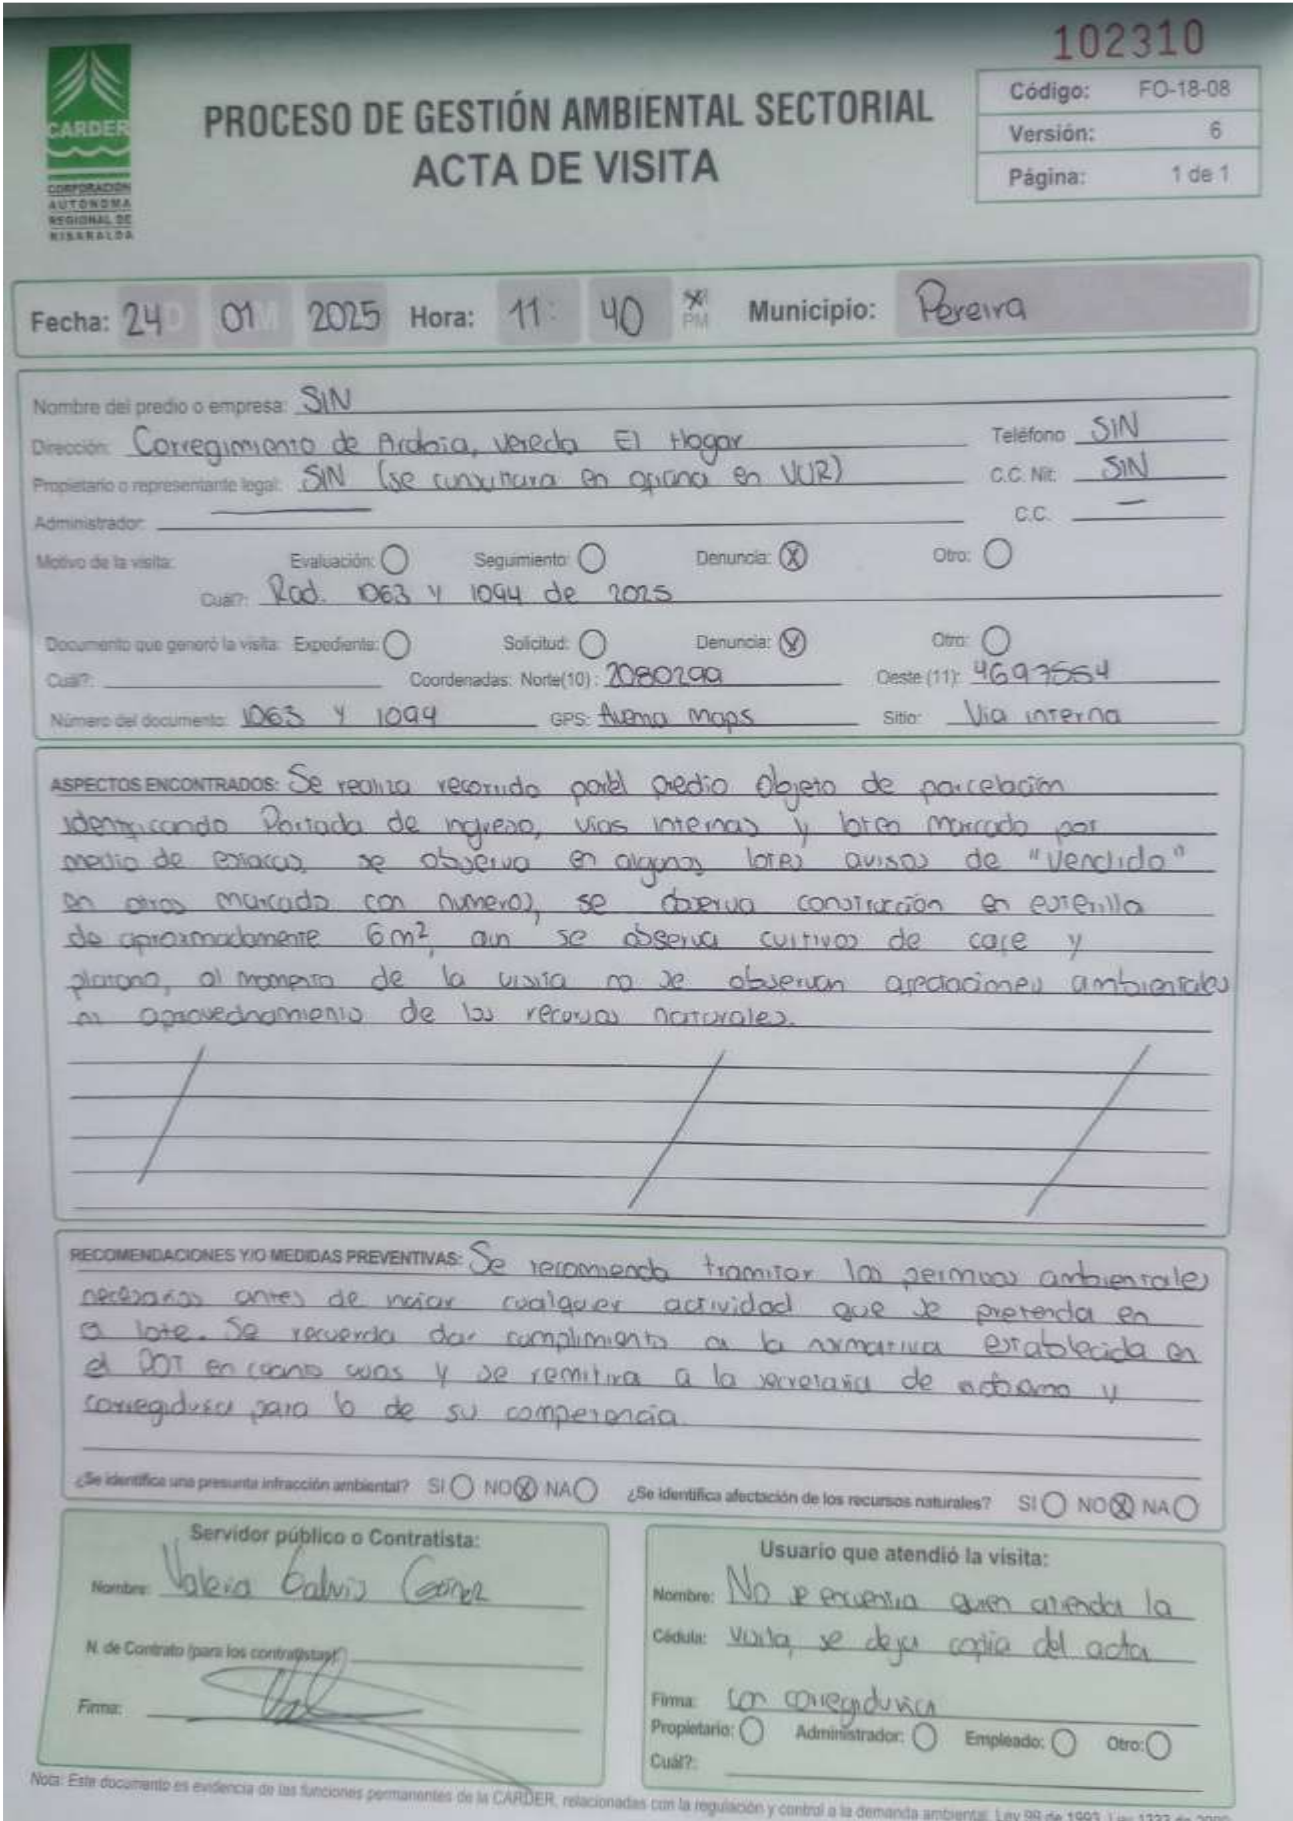 102310
CARDER
CORPORACION
AUTONOMA
REGIONAL DE
RISARALDA
PROCESO DE GESTIÓN AMBIENTAL SECTORIAL
ACTA DE VISITA
Código: FO-18-08
Versión: 6
Página: 1 de 1
Fecha: 24 01 2025 Hora: 11: 40 PM Municipio: Pereira
Nombre del predio o empresa: SIN
Dirección: Corregimiento de Arabia, vereda El Hogar Teléfono SIN
Propietario o representante legal: SIN (se consultara en oficina en VUR) C.C. Nit: SIN
Administrador: C.C. —
Motivo de la visita: Evaluación: Seguimiento: Denuncia: X Otro:
Cuál?: Rad. 1063 y 1094 de 2025
Documento que generó la visita: Expediente: Solicitud: Denuncia: X Otro:
Cuál?: Coordenadas: Norte(10): 2080299 Oeste (11): 4697554
Número del documento: 1063 y 1094 GPS: Avenza Maps Sitio: Via interna
ASPECTOS ENCONTRADOS: Se realiza recorrido por el predio objeto de parcelación
identificando Portada de ingreso, vias internas y lotes marcado por
medio de estacas, se observa en algunos lotes avisos de "Vendido"
en otros marcado con numeros, se observa construcción en esterilla
de aproximadamente 6m², aun se observa cultivos de cafe y
platano, al momento de la visita no se observan afectaciones ambientales
ni aprovechamiento de los recursos naturales.
RECOMENDACIONES Y/O MEDIDAS PREVENTIVAS: Se recomienda tramitar los permisos ambientales
necesarios antes de iniciar cualquier actividad que se pretenda en
lote. Se recuerda dar cumplimiento a la normativa establecida en
el POT en cuanto usos y se remitira a la secretaria de gobierno y
corregiduria para lo de su competencia.
¿Se identifica una presunta infracción ambiental? SI NO X NA ¿Se identifica afectación de los recursos naturales? SI NO X NA
Servidor público o Contratista:
Nombre: Valeria Galvis Gómez
N. de Contrato (para los contratistas):
Firma:
Usuario que atendió la visita:
Nombre: No se encuentra quien atienda la
Cédula: visita, se deja copia del acta
Firma: con corregiduria
Propietario: Administrador: Empleado: Otro:
Cuál?:
Nota: Este documento es evidencia de las funciones permanentes de la CARDER, relacionadas con la regulación y control a la demanda ambiental. Ley 99 de 1993, Ley 1333 de 2009